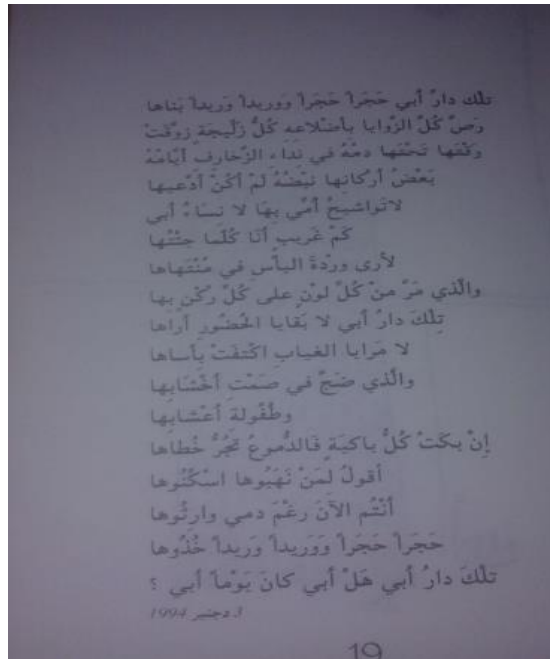 تلك دارُ أبي حَجَراً حَجَراً وَوريداً وَريداً بَناها
رَصَّ كُلَّ الزَّوايا بأضْلاعه كُلُّ زلّيجَةٍ زوَّقَتْ
وَقْتَها تَحْتَها دمُهُ في نداء الزّخارف أيّامُهُ
بَعْضُ أرْكانها نَبْضُهُ لَمْ أكُنْ أدَّعيها
لاتَواشيحُ أمّي بِهَا لا نساءُ أبي
كَمْ غَريبٍ أنَا كُلّما جئْتُها
لأرى ورْدةَ اليأس في مُنْتَهاها
والّذي مَرَّ منْ كُلّ لوْنٍ على كُلّ ركْنٍ بِها
تِلْكَ دارُ أبي لا بَقايا الحُضُور أراها
لا مَرايا الغيابِ اكْتفَتْ بِأساها
والّذي ضَجَّ في صَمْتِ أخْشَابِها
وطُفُولة أعْشابِها
إنْ بكَتْ كُلُّ باكيَةٍ فَالدُّموعُ تَجُرُّ خُطاها
أقولُ لِمَنْ نَهَبُوها اسْكُنُوها
أنْتُم الآنَ رغْمَ دمي وارثُوها
حَجَراً حَجَراً وَوَريداً وَريداً خُذُوها
تلْكَ دارُ أبي هَلْ أبي كانَ يَوْماً أبي ؟
دجنبر 1994
19